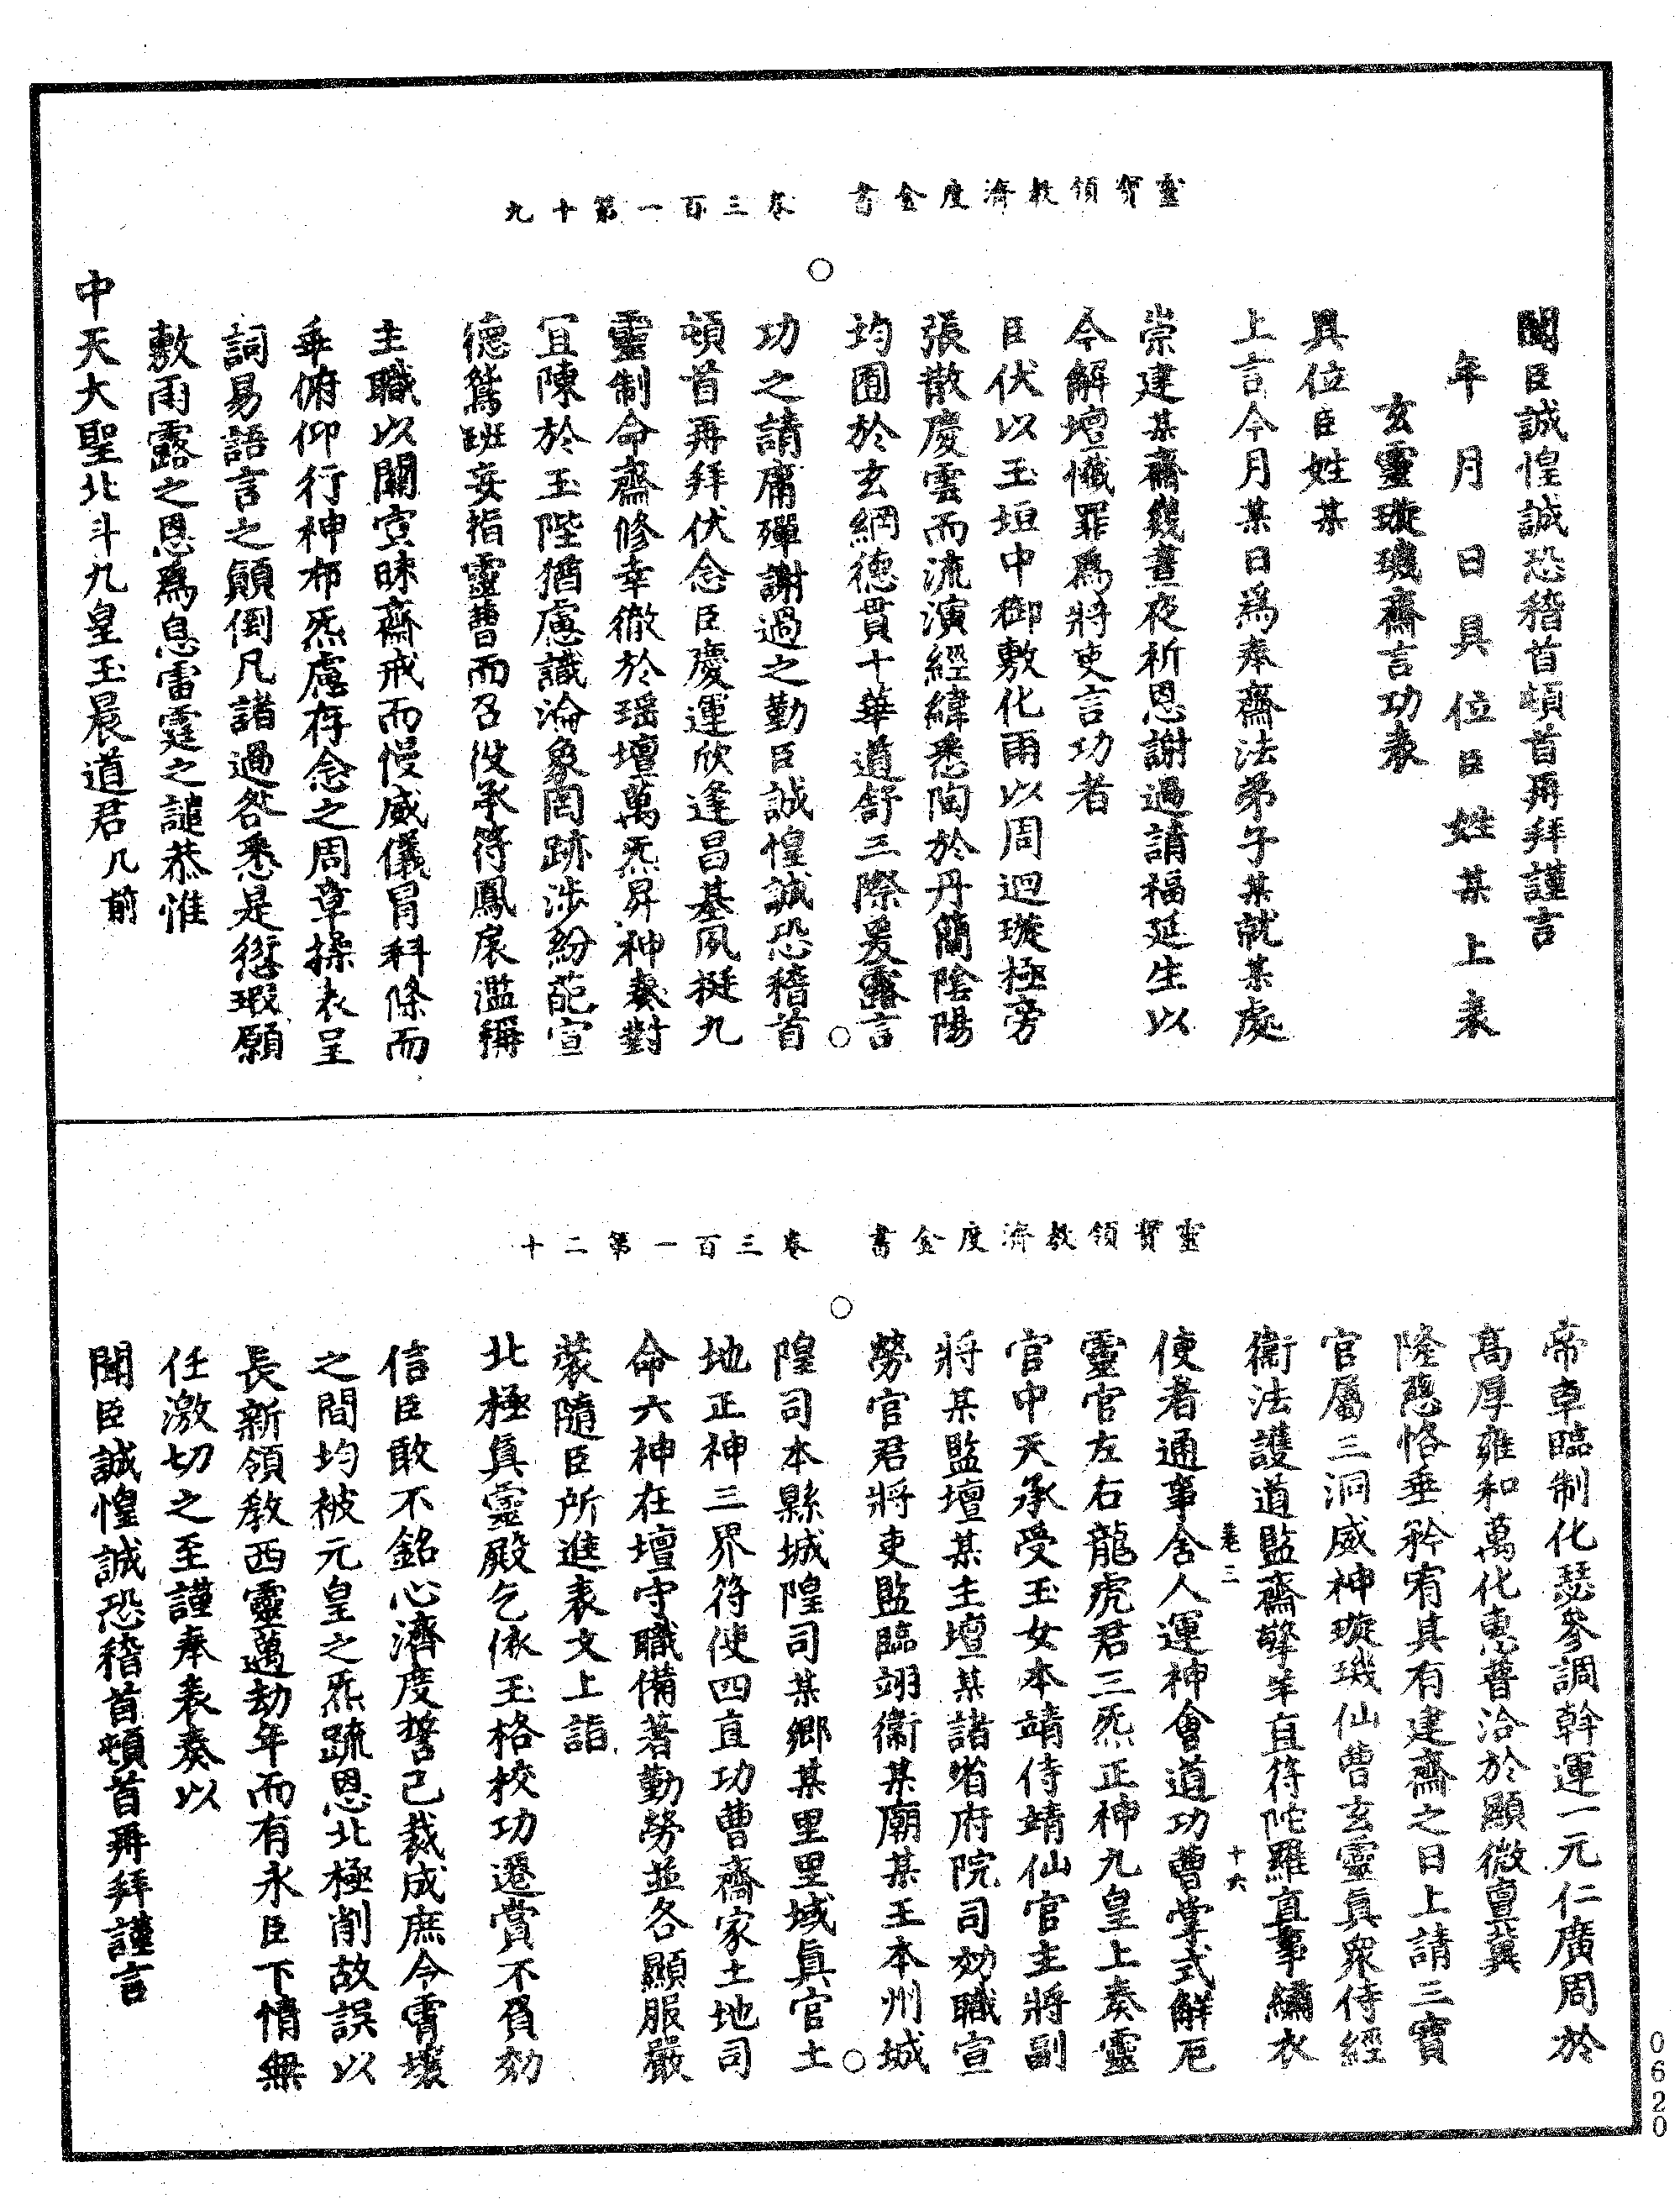 靈寶領教濟度金書　卷三百一第十九
聞臣誠惶誠恐稽首頓首再拜謹言
年　月　日具位臣姓某上表
玄靈璇璣齋言功表
具位臣姓某
上言今月某日為奉齋法弟子某就某處
崇建某齋幾晝夜祈恩謝過請福延生以
今解壇懺罪為將吏言功者
臣伏以玉垣中御敷化雨以周迴璇極旁
張散慶雲而流演經緯悉陶於丹簡陰陽
均囿於玄綱德貫十華道舒三際爰露言
功之請庸殫謝過之勤臣誠惶誠恐稽首
頓首再拜伏念臣慶運欣逢昌基夙挺九
靈制命齋修幸徹於瑤壇萬炁昇神奏對
宜陳於玉陛猶慮識淪象罔跡涉紛葩宣
德鵷班妄指靈曹而召役承符鳳扆濫稱
主職以闡宣昧齋戒而慢威儀冐科條而
乖俯仰行神布炁慮存念之周章操表呈
詞易語言之顛倒凡諸過咎悉是愆瑕願
敷雨露之恩為息雷霆之譴恭惟
中天大聖北斗九皇玉晨道君几前
靈寶領教濟度金書　卷三百一第二十
帝車臨制化瑟參調斡運一元仁廣周於
高厚雍和萬化惠普洽於顯微亶冀
隆慈恪垂矜宥其有建齋之日上請三寶
官屬三洞威神璇璣仙曹玄靈眞衆侍經
衞法護道監齋擎羊直符陀羅直事繡衣
卷三　十六
使者通事舍人運神會道功曹掌式解厄
靈官左右龍虎君三炁正神九皇上奏靈
官中天承受玉女本靖侍靖仙官主將副
將某監壇某主壇某諸省府院司効職宣
勞官君將吏監臨翊衞某廟某王本州城
隍司本縣城隍司某鄉某里里域眞官土
地正神三界符使四直功曹齋家土地司
命六神在壇守職備著勤勞並各顯服嚴
裝隨臣所進表文上詣
北極眞靈殿乞依玉格校功遷賞不負効
信臣敢不銘心濟度誓己裁成庶令霄壤
之間均被元皇之炁疏恩北極削故誤以
長新領教西靈邁劫年而有永臣下情無
任激切之至謹奉表奏以
聞臣誠惶誠恐稽首頓首再拜謹言
0620